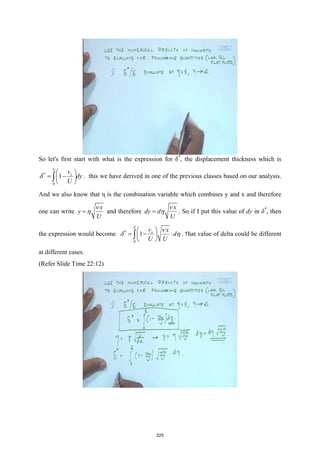 USE THE NUMERICAL RESULTS OF HOWARTH
TO EVALUATE THE FOLLOWING QUANTITIES (LAM. BL
FLAT PLATE)
1) δ*/δ AT η=5, η→∝
So let's start first with what is the expression for δ*, the displacement thickness which is
δ* = ∫₀^δ (1 − vₓ/U) dy. this we have derived in one of the previous classes based on our analysis.
And we also know that η is the combination variable which combines y and x and therefore
one can write y = η√(νx/U) and therefore dy = dη√(νx/U). So if I put this value of dy in δ*, then
the expression would become δ* = ∫₀^δ (1 − vₓ/U) √(νx/U) · dη. That value of delta could be different
at different cases.
(Refer Slide Time 22:12)
USE THE NUMERICAL RESULTS OF HOWARTH
TO EVALUATE THE FOLLOWING QUANTITIES (LAM. BL
FLAT PLATE)
1) δ*/δ AT η=5, η→∝
δ* = ∫₀^δ (1 − vₓ/U) dy
η = y√(U/νx) → y = η√(νx/U) dy = dη√(νx/U)
δ* = ∫₀^δ (1 − vₓ/U) √(νx/U) dη.
225